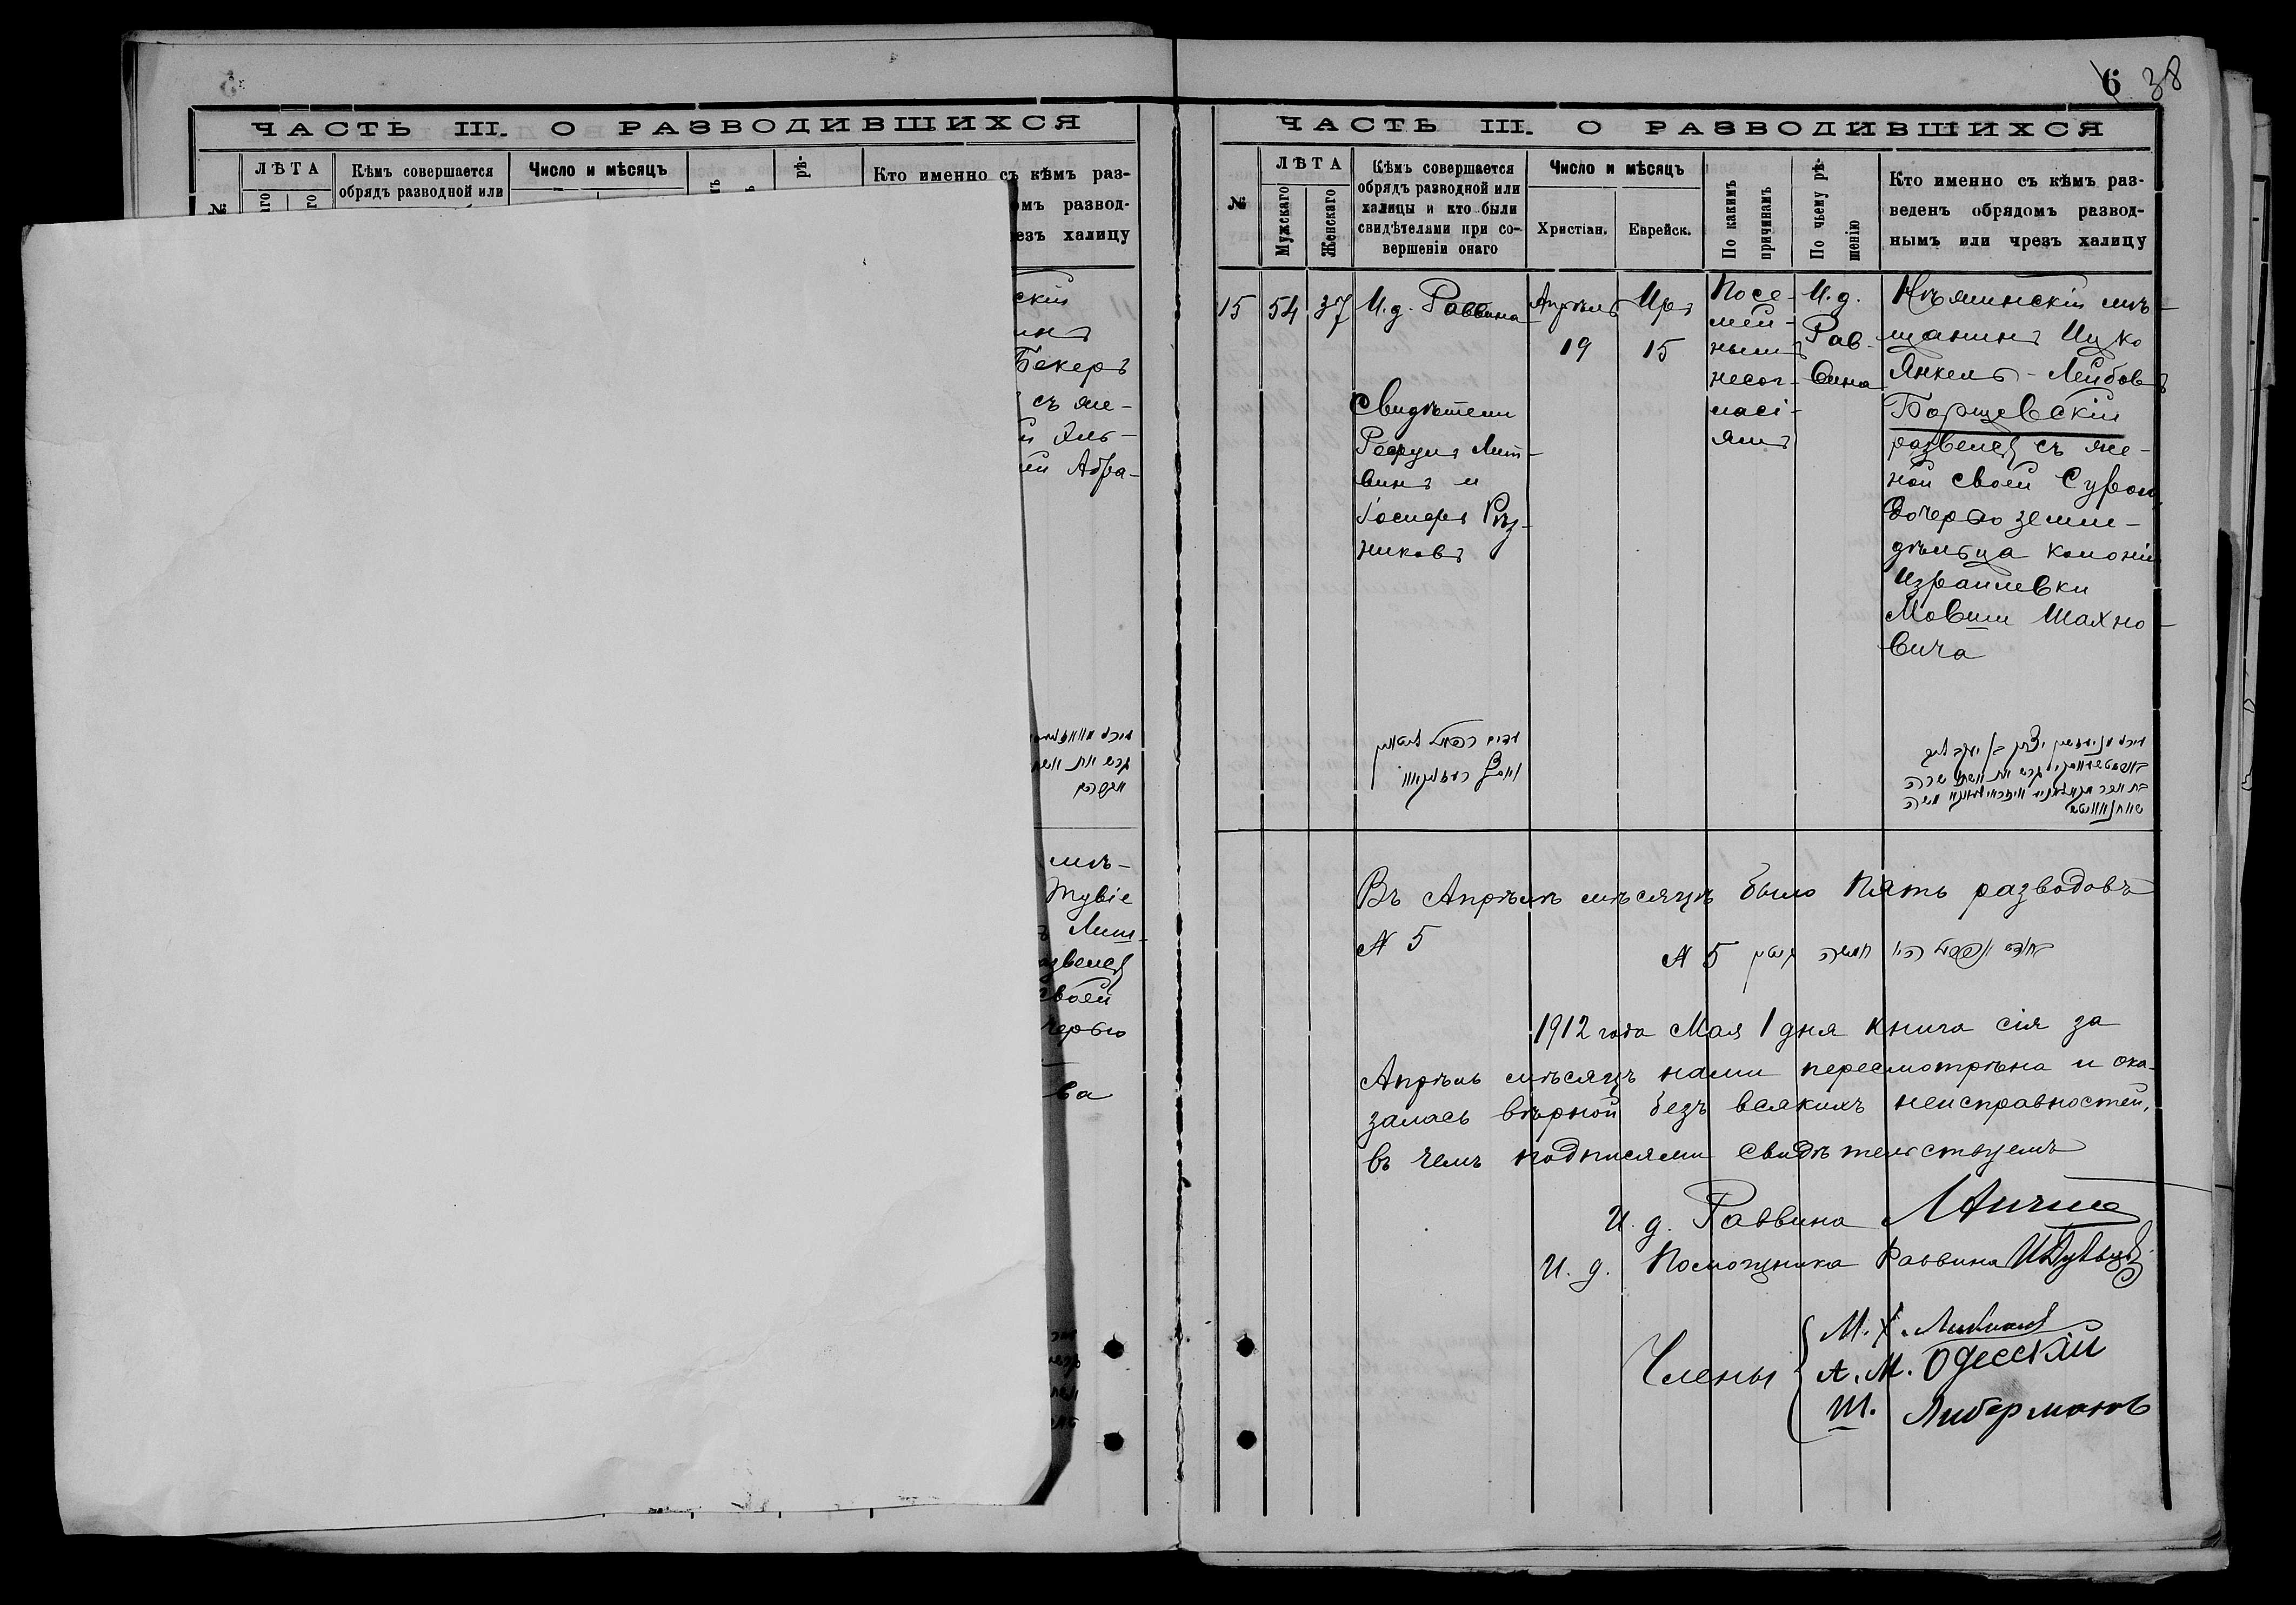 ЧАСТЬ III. О РАЗВОДИВШИХСЯ
№
ЛѢТА
Кѣмъ совершается
обрядъ разводной или
Число и мѣсяцъ
рѣ-
Кто именно съ кѣмъ раз-
омъ развод-
езъ халицу
скій
инъ
Бекеръ
съ же-
ей Абра-
мѣ-
Тувіе
азведенъ
своей
черью
ва
6 38
ЧАСТЬ III. О РАЗВОДИВШИХСЯ
№
ЛѢТА
Мужскаго
Женскаго
Кѣмъ совершается
обрядъ разводной или
халицы и кто были
свидѣтелями при со-
вершеніи онаго
Число и мѣсяцъ
Христіан.
Еврейск.
По какимъ
причинамъ
По чьему рѣ-
шенію
Кто именно съ кѣмъ раз-
веденъ обрядомъ развод-
нымъ или чрезъ халицу
15
54
37
И. д. Раввина
Свидѣтели
Рафулъ Лит-
винъ и
Іосифъ Рѣз-
никовъ
עדים רפאל ליטווין
ויוסף רעזניקאוו
Апрѣль
19
Иръ
15
По се-
мей-
нымъ
несог-
ласі-
ямъ
И. д.
Рав-
вина
Нѣжинскій мѣ-
щанинъ Ицко
Янкель-Лейбовъ
Борщевскій
разведенъ съ же-
ной своей Сурою,
дочерью земле-
дѣльца колоніи
Израилевки
Мовши Шахно-
вича
Въ Апрѣлѣ мѣсяцѣ было пять разводовъ
№ 5
№ 5
1912 года Мая 1 дня книга сія за
Апрѣль мѣсяцъ нами пересмотрѣна и ока-
залась вѣрной безъ всякихъ неисправностей,
въ чемъ подписями свидѣтельствуемъ
И. д. Раввина
И. д. Помощника Раввина
Члены
М. Х.
А. М. Одесскій
Ш. Либермановъ